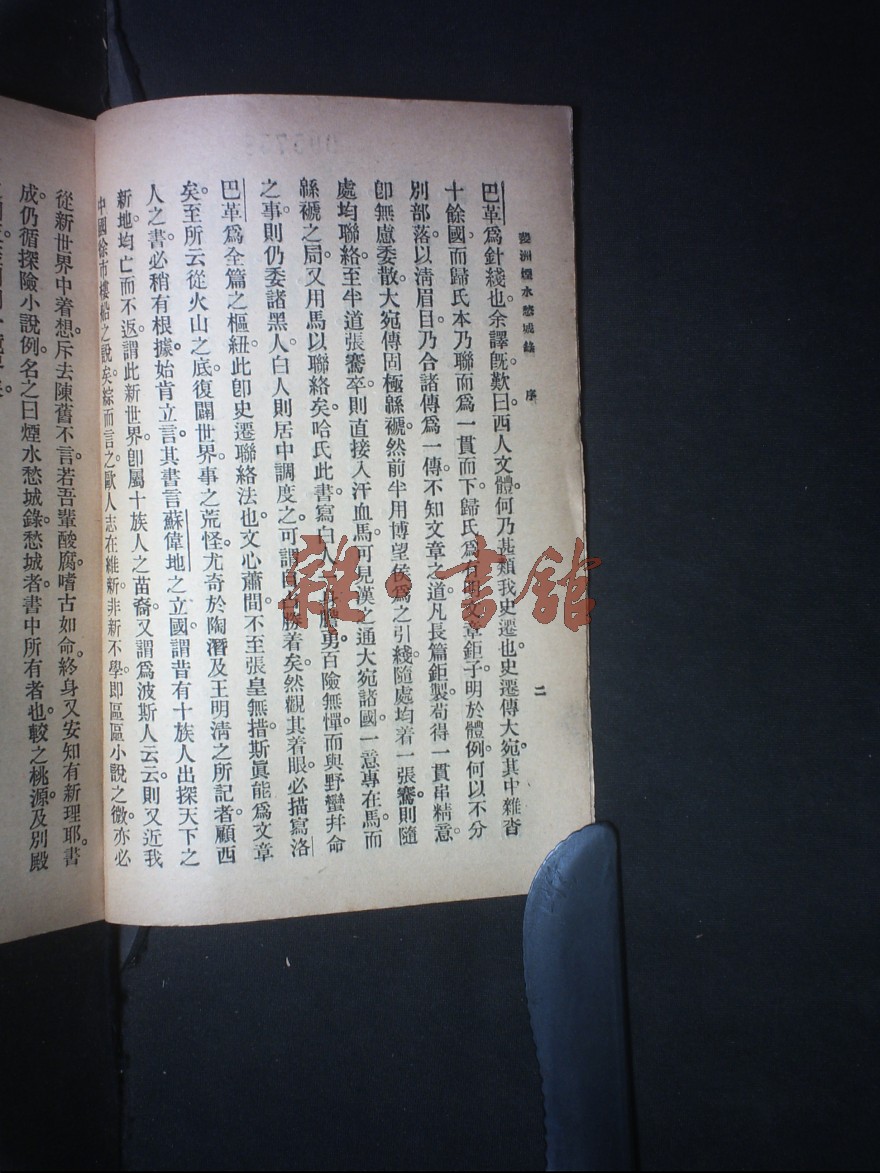 斐洲煙水愁城錄 序 二
巴革爲針綫也。余譯旣歎曰。西人文體。何乃甚類我史遷也。史遷傳大宛。其中雜沓
十餘國。而歸氏本乃聯而爲一貫而下。歸氏爲有明文章鉅子。明於體例。何以不分
別部落。以淸眉目。乃合諸傳爲一傳。不知文章之道。凡長篇鉅製。苟得一貫串精意。
卽無慮委散。大宛傳固極緜褫。然前半用博望侯爲之引綫。隨處均着一張騫。則隨
處均聯絡。至半道張騫卒。則直接入汗血馬。可見漢之通大宛諸國。一意專在馬。而
緜褫之局。又用馬以聯絡矣。哈氏此書。寫白人勇百險無憚。而與野蠻幷命
之事。則仍委諸黑人。白人則居中調度之。可謂自占勝着矣。然觀其着眼。必描寫洛
巴革爲全篇之樞紐。此卽史遷聯絡法也。文心蕭閒。不至張皇無措。斯眞能爲文章
矣。至所云從火山之底。復闢世界。事之荒怪。尤奇於陶潛及王明淸之所記者。顧西
人之書。必稍有根據。始肯立言。其書言蘇偉地之立國。謂昔有十族人出探天下之
新地。均亡而不返。謂此新世界。卽屬十族人之苗裔。又謂爲波斯人云云。則又近我
中國徐市樓船之說矣。綜而言之。歐人志在維新。非新不學。卽區區小說之微。亦必
從新世界中着想。斥去陳舊不言。若吾輩酸腐嗜古如命。終身又安知有新理耶。書
成。仍循探險小說例。名之曰煙水愁城錄。愁城者。書中所有者也。較之桃源及別殿
雜·書館